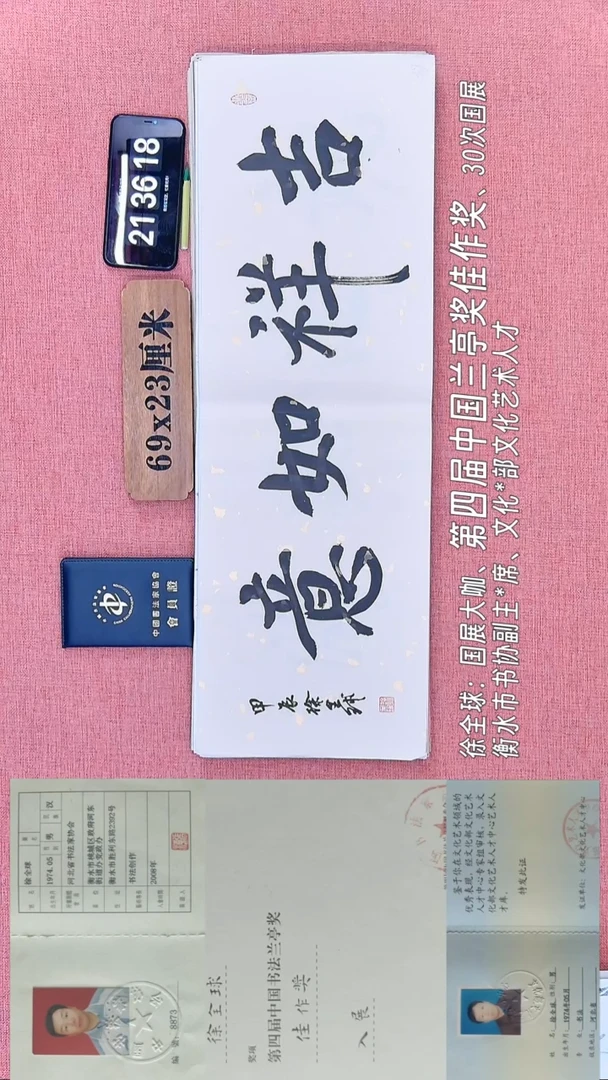 吉祥如意
甲辰徐全球
21 36 18
69x23厘米
中國書法家協會
會員證
徐全球：国展大咖、第四届中国兰亭奖佳作奖、30次国展
衡水市书协副主*席、文化*部文化艺术人才
徐全球
1974.05
男
汉
河北省书法家协会
衡水市桃城区政府河东
街道办党政办
衡水市胜利东路2202号
书法创作
2009年
编号: 8873
徐全球
奖项
第四届中国书法兰亭奖
佳作奖
入展
鉴于你在文化艺术领域的
优秀表现，经文化部文化艺术
人才中心专家组审核，录入文
化部文化艺术人才中心艺术人
才库。
特发此证
发证单位：文化部文化艺术人才中心
姓名：徐全球
出生年月：1974年05月